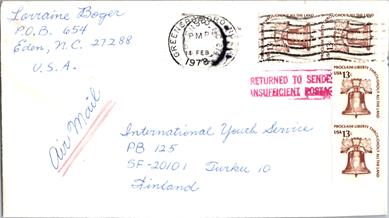 Lorraine Boger
P.O.B. 654
Eden, N.C. 27288
U.S.A.
GREENSBORO
PM
FEB
1978
RETURNED TO SENDER
INSUFFICIENT POSTAGE
PROCLAIM LIBERTY
THROUGHOUT ALL THE LAND
USA 13c
PROCLAIM LIBERTY
THROUGHOUT ALL THE LAND
USA 13c
Air Mail
International Youth Service
PB 125
SF-20101 Turku 10
Finland